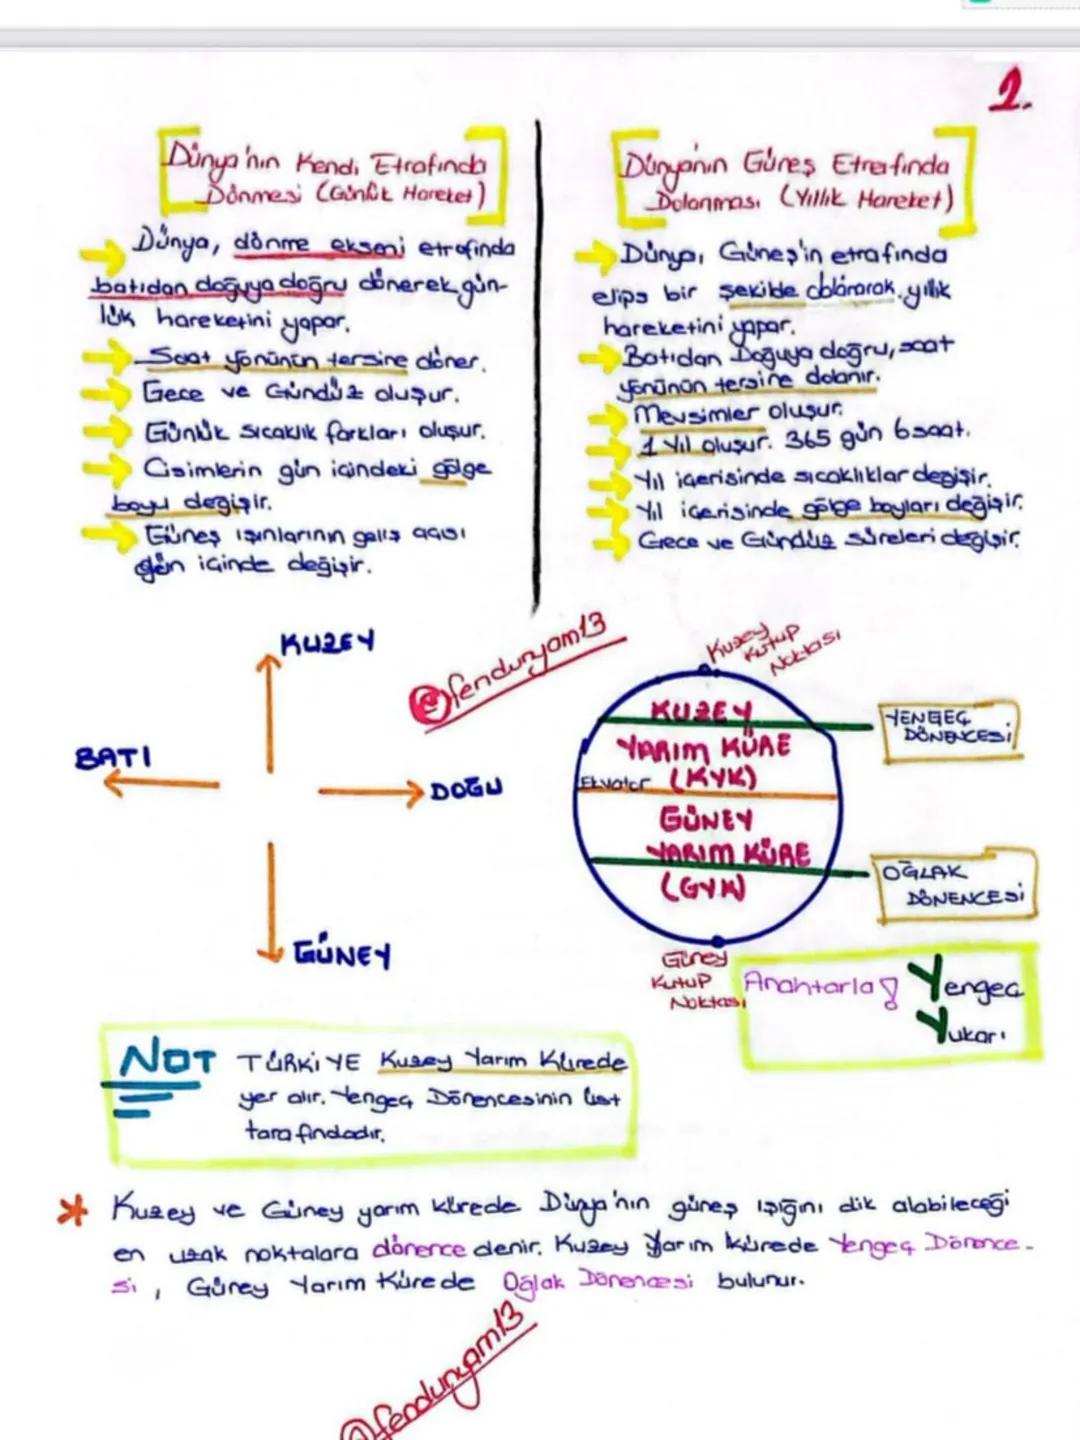 2.
Dünya'nın Kendi Etrafında
Dönmesi (Günlük Hareket)
Dünya, dönme ekseni etrafında
batıdan doğuya doğru dönerek gün-
lük hareketini yapar.
Saat yönünün tersine döner.
Gece ve Gündüz oluşur.
Günlük sıcaklık farkları oluşur.
Cisimlerin gün içindeki gölge
boyu değişir.
Güneş ışınlarının geliş açısı
gün içinde değişir.
Dünyanın Güneş Etrafında
Dolanması (Yıllık Hareket)
Dünya, Güneş'in etrafında
elips bir şekilde dolanarak yıllık
hareketini yapar.
Batıdan Doğuya doğru, saat
yönünün tersine dolanır.
Mevsimler oluşur.
1 Yıl oluşur. 365 gün 6 saat.
Yıl içerisinde sıcaklıklar değişir.
Yıl içerisinde gölge boyları değişir.
Gece ve Gündüz süreleri değişir.
KUZEY
BATI
DOĞU
GÜNEY
@fendunyam13
Kuzey
Kutup
Noktası
KUZEY
YARIM KÜRE
(KYK)
Ekvator
GÜNEY
YARIM KÜRE
(GYK)
YENGEÇ
DÖNENCESİ
OĞLAK
DÖNENCESİ
Güney
Kutup
Noktası
Anahtarla!
Yengeç
Yukarı
NOT TÜRKİYE Kuzey Yarım Kürede
yer alır. Yengeç Dönencesinin üst
tarafındadır.
* Kuzey ve Güney yarım kürede Dünya'nın güneş ışığını dik alabileceği
en uzak noktalara dönence denir. Kuzey Yarım kürede Yengeç Dönence-
si, Güney Yarım Kürede Oğlak Dönencesi bulunur.
@fendunyam13